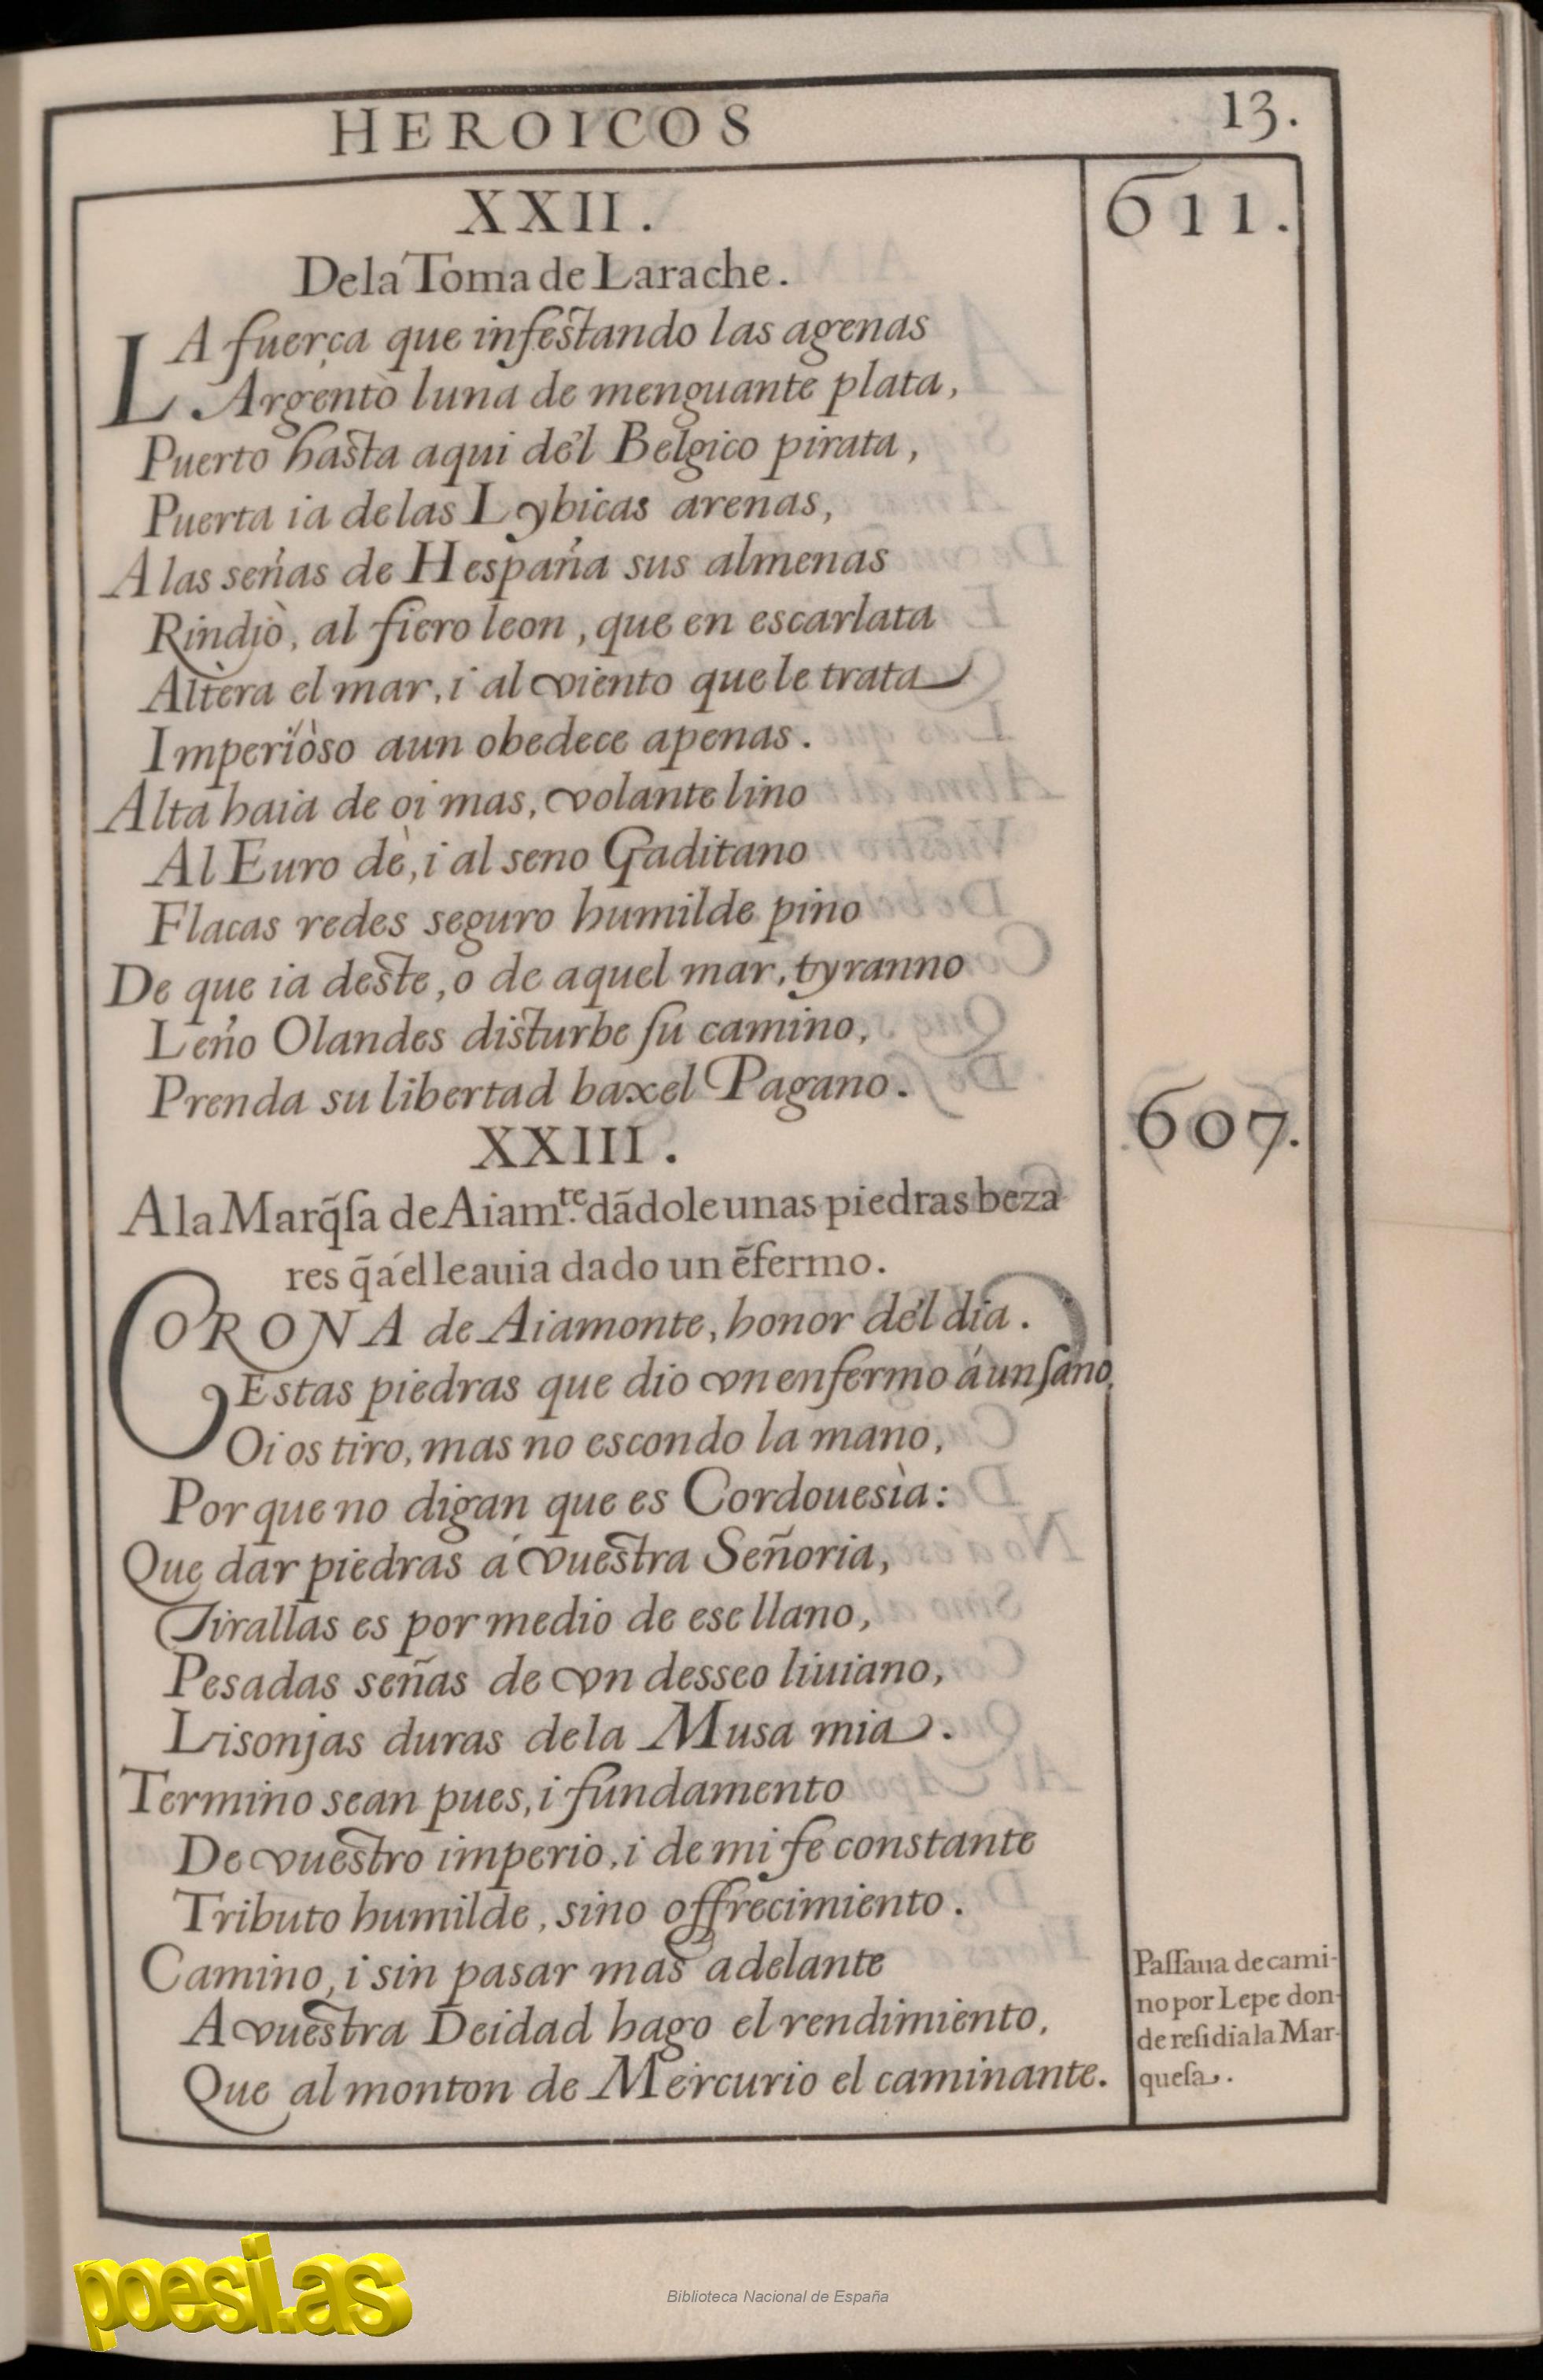 HEROICOS
13.
XXII.
611.
De la Toma de Larache.
LA fuerça que infestando las agenas
Argentò luna de menguante plata,
Puerto hasta aqui dél Belgico pirata,
Puerta ia delas Lybicas arenas,
A las señas de Hespaña sus almenas
Rindiò, al fiero leon, que en escarlata
Altèra el mar, i al viento que le trata
Imperïòso aun obedece apenas.
Alta haia de oi mas, volante lino
Al Euro dè, i al seno Gaditano
Flacas redes seguro humilde pino
De que ia deste, o de aquel mar, tyranno
Leño Olandes disturbe su camino,
Prenda su libertad baxel Pagano.
XXIII.
607.
A la Marq̃sa de Aiam.te dãdole unas piedras beza
res q̃ á él le auia dado un ẽfermo.
CORONA de Aiamonte, honor dél dia.
Estas piedras que dio vn enfermo á un sano,
Oi os tiro, mas no escondo la mano,
Por que no digan que es Cordouesìa:
Que dar piedras á vuestra Señoria,
Tirallas es por medio de ese llano,
Pesadas señas de vn desseo liuiano,
Lisonjas duras dela Musa mia.
Termino sean pues, i fundamento
De vuestro imperio, i de mi fe constante
Tributo humilde, sino offrecimiento.
Camino, i sin pasar mas adelante
A vuestra Deidad hago el rendimiento,
Que al monton de Mercurio el caminante.
Passaua de cami-
no por Lepe don-
de residia la Mar-
quesa.
poesi.as
Biblioteca Nacional de España